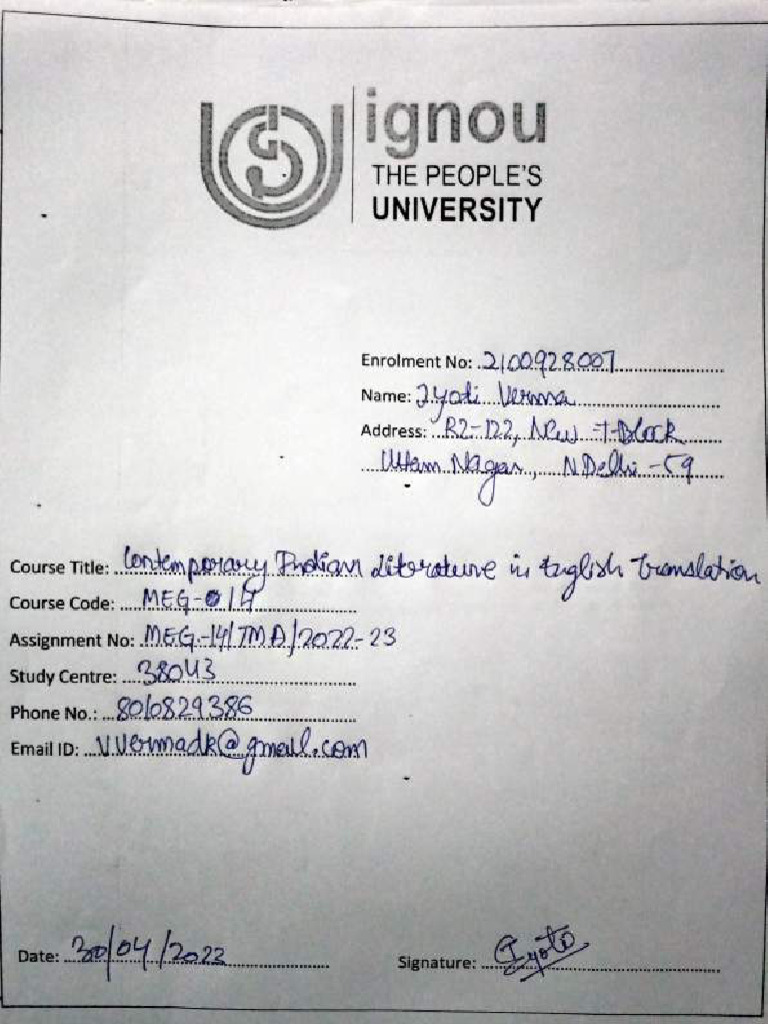 ignou
THE PEOPLE'S
UNIVERSITY
Enrolment No: 2100928007
Name: Jyoti Verma
Address: RZ-122, New T-Block
Uttam Nagar, N Delhi -59
Course Title: Contemporary Indian Literature in English Translation
Course Code: MEG-014
Assignment No: MEG-14/TMA/2022-23
Study Centre: 38043
Phone No.: 8010829386
Email ID: vvermadk@gmail.com
Date: 30/04/2022
Signature: Jyoti